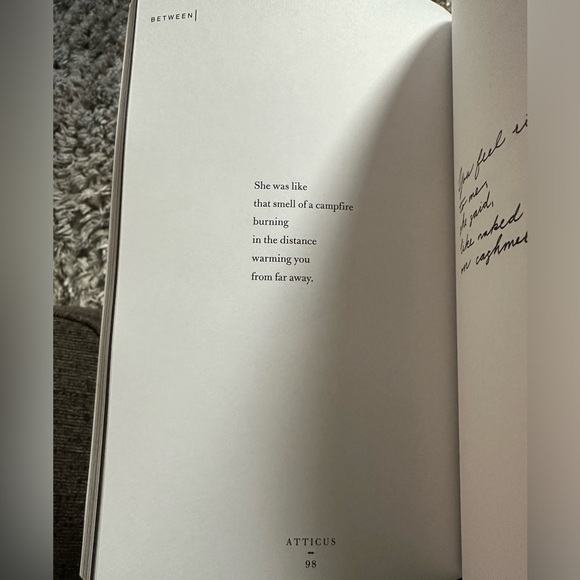 BETWEEN
She was like
that smell of a campfire
burning
in the distance
warming you
from far away.
ATTICUS
98
You feel
to me,
she said,
like naked
in cashme